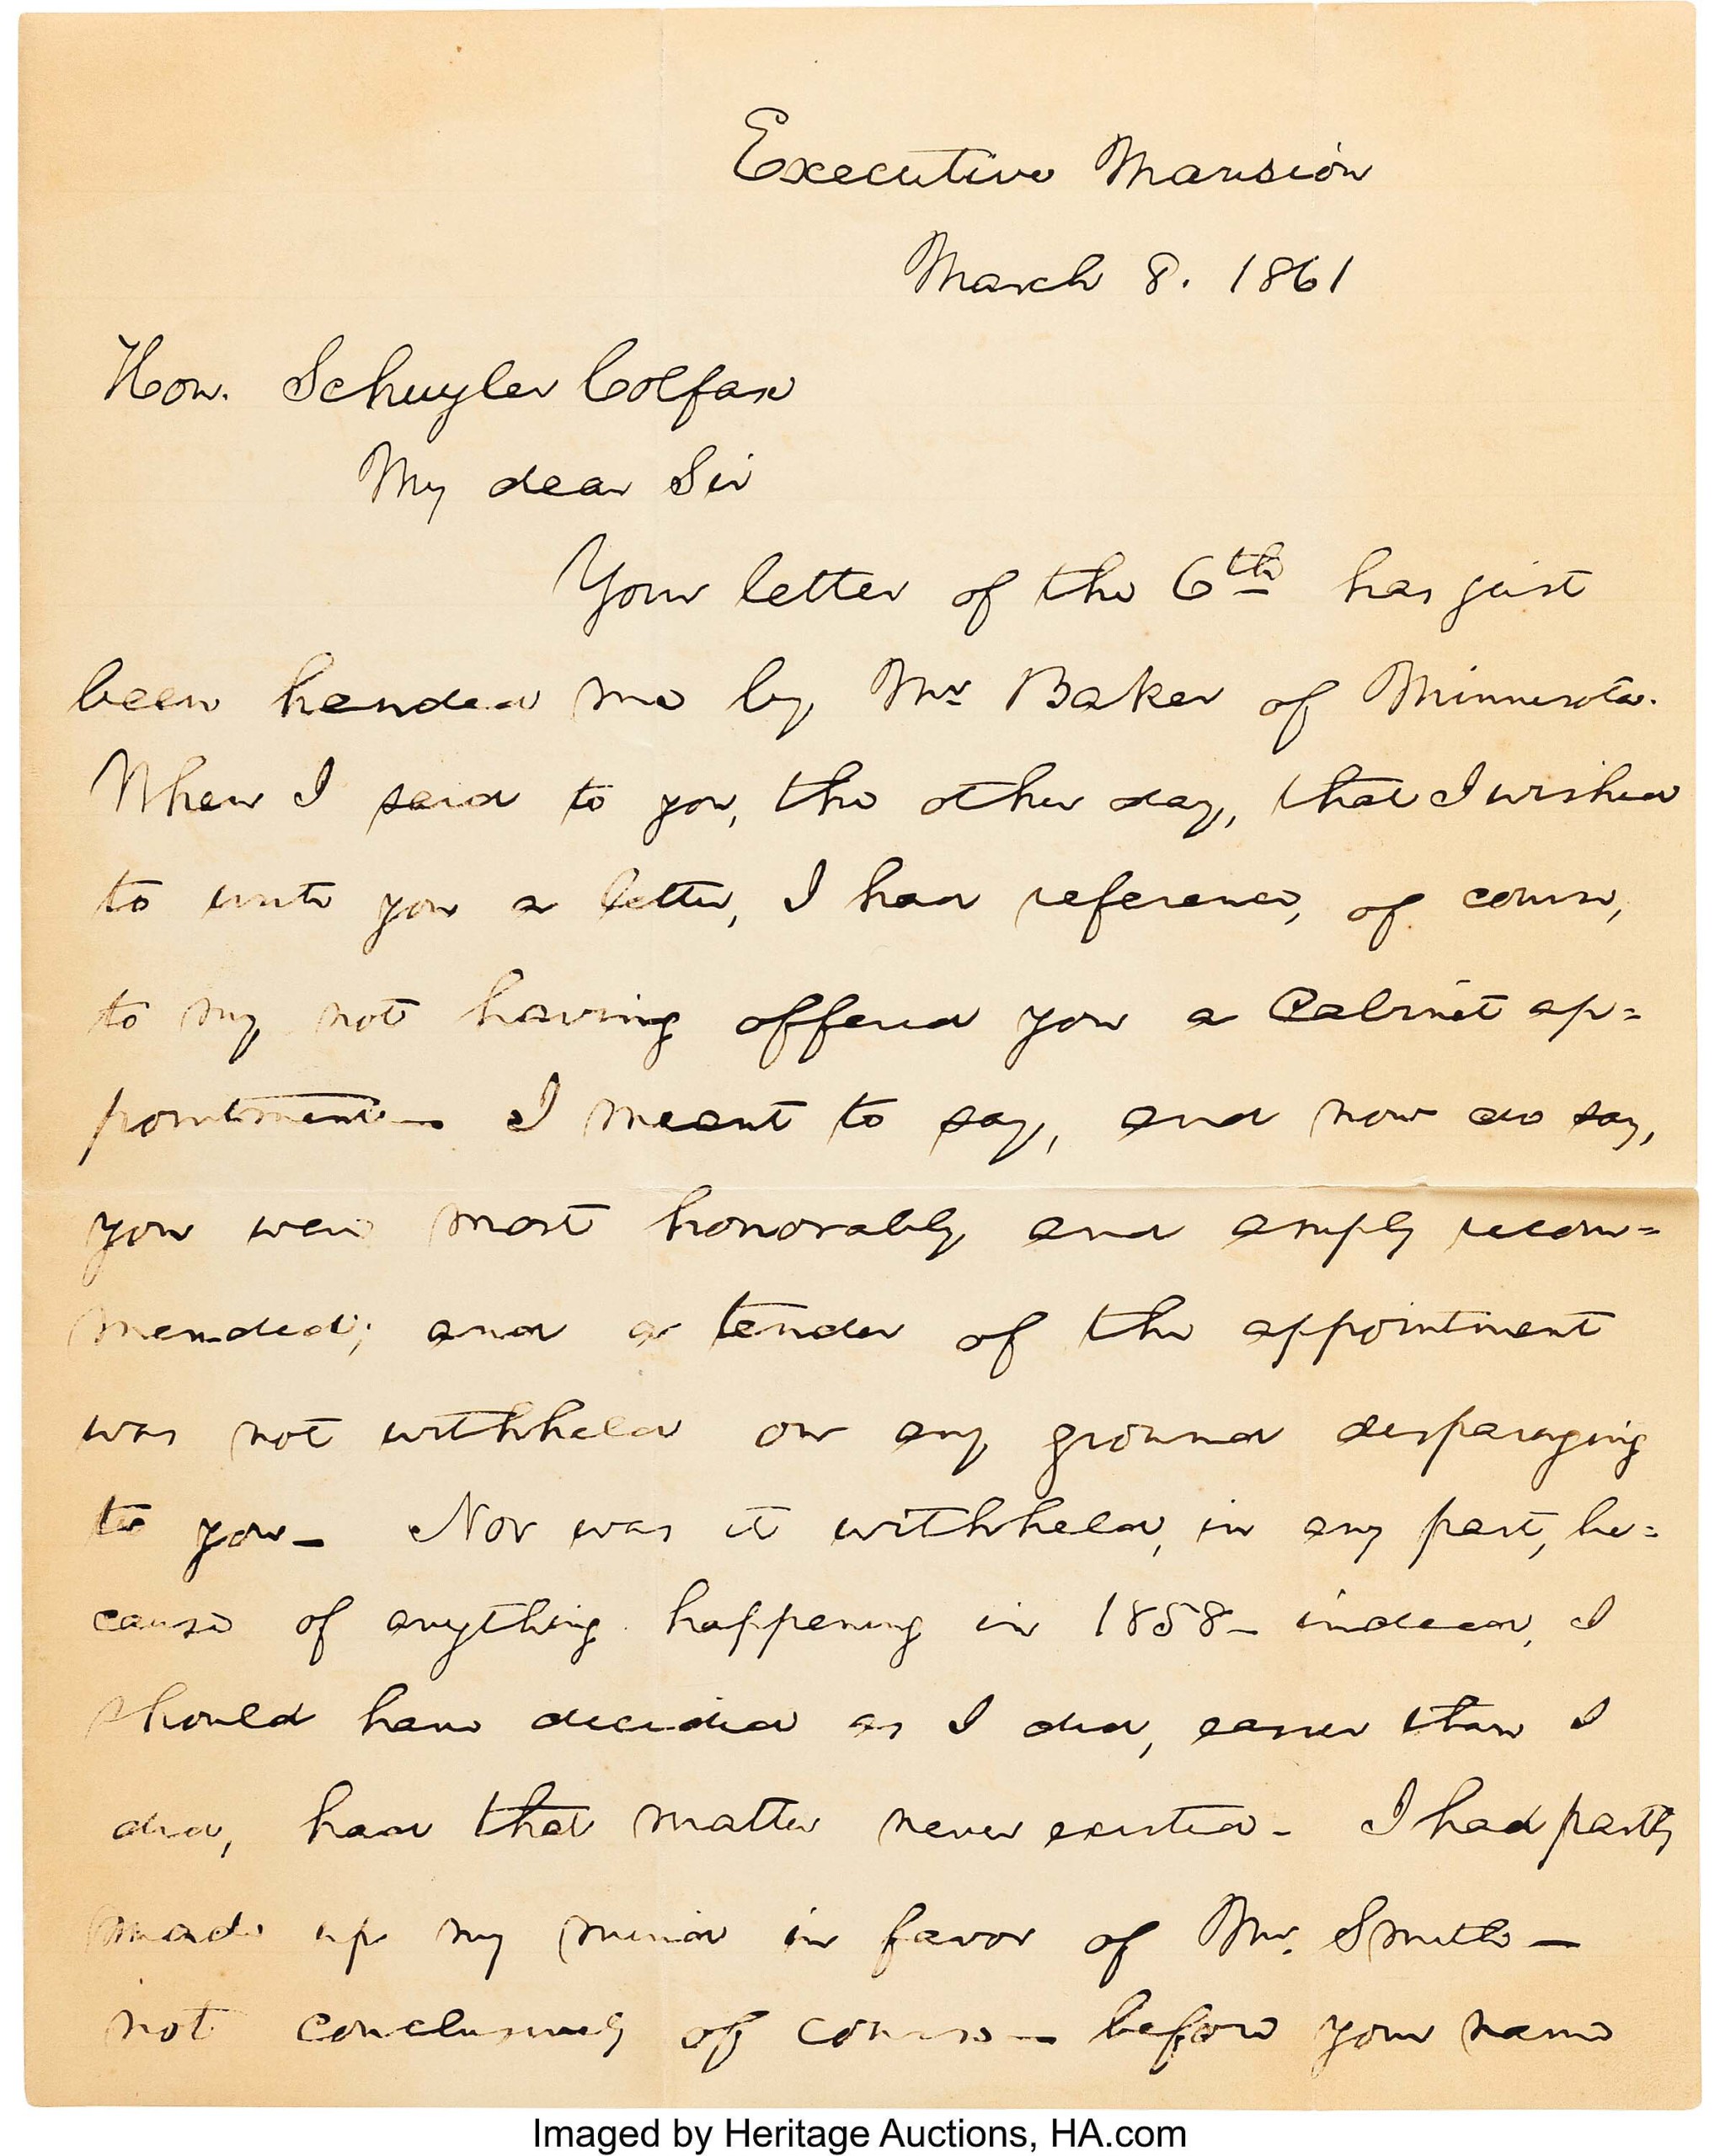 Executive Mansion
March 8. 1861
Hon. Schuyler Colfax
My dear Sir
Your letter of the 6th has just
been handed me by Mr Baker of Minnesota.
When I said to you, the other day, that I wished
to write you a letter, I had reference, of course,
to my not having offered you a Cabinet ap=
pointment— I meant to say, and now do say,
you were most honorably and amply recom=
mended; and a tender of the appointment
was not withheld on any ground disparaging
to you— Nor was it withheld, in any part, be=
cause of anything happening in 1858— indeed, I
should have decided as I did, easier than I
did, had that matter never existed— I had partly
made up my mind in favor of Mr. Smith—
not conclusively of course— before your name
Imaged by Heritage Auctions, HA.com